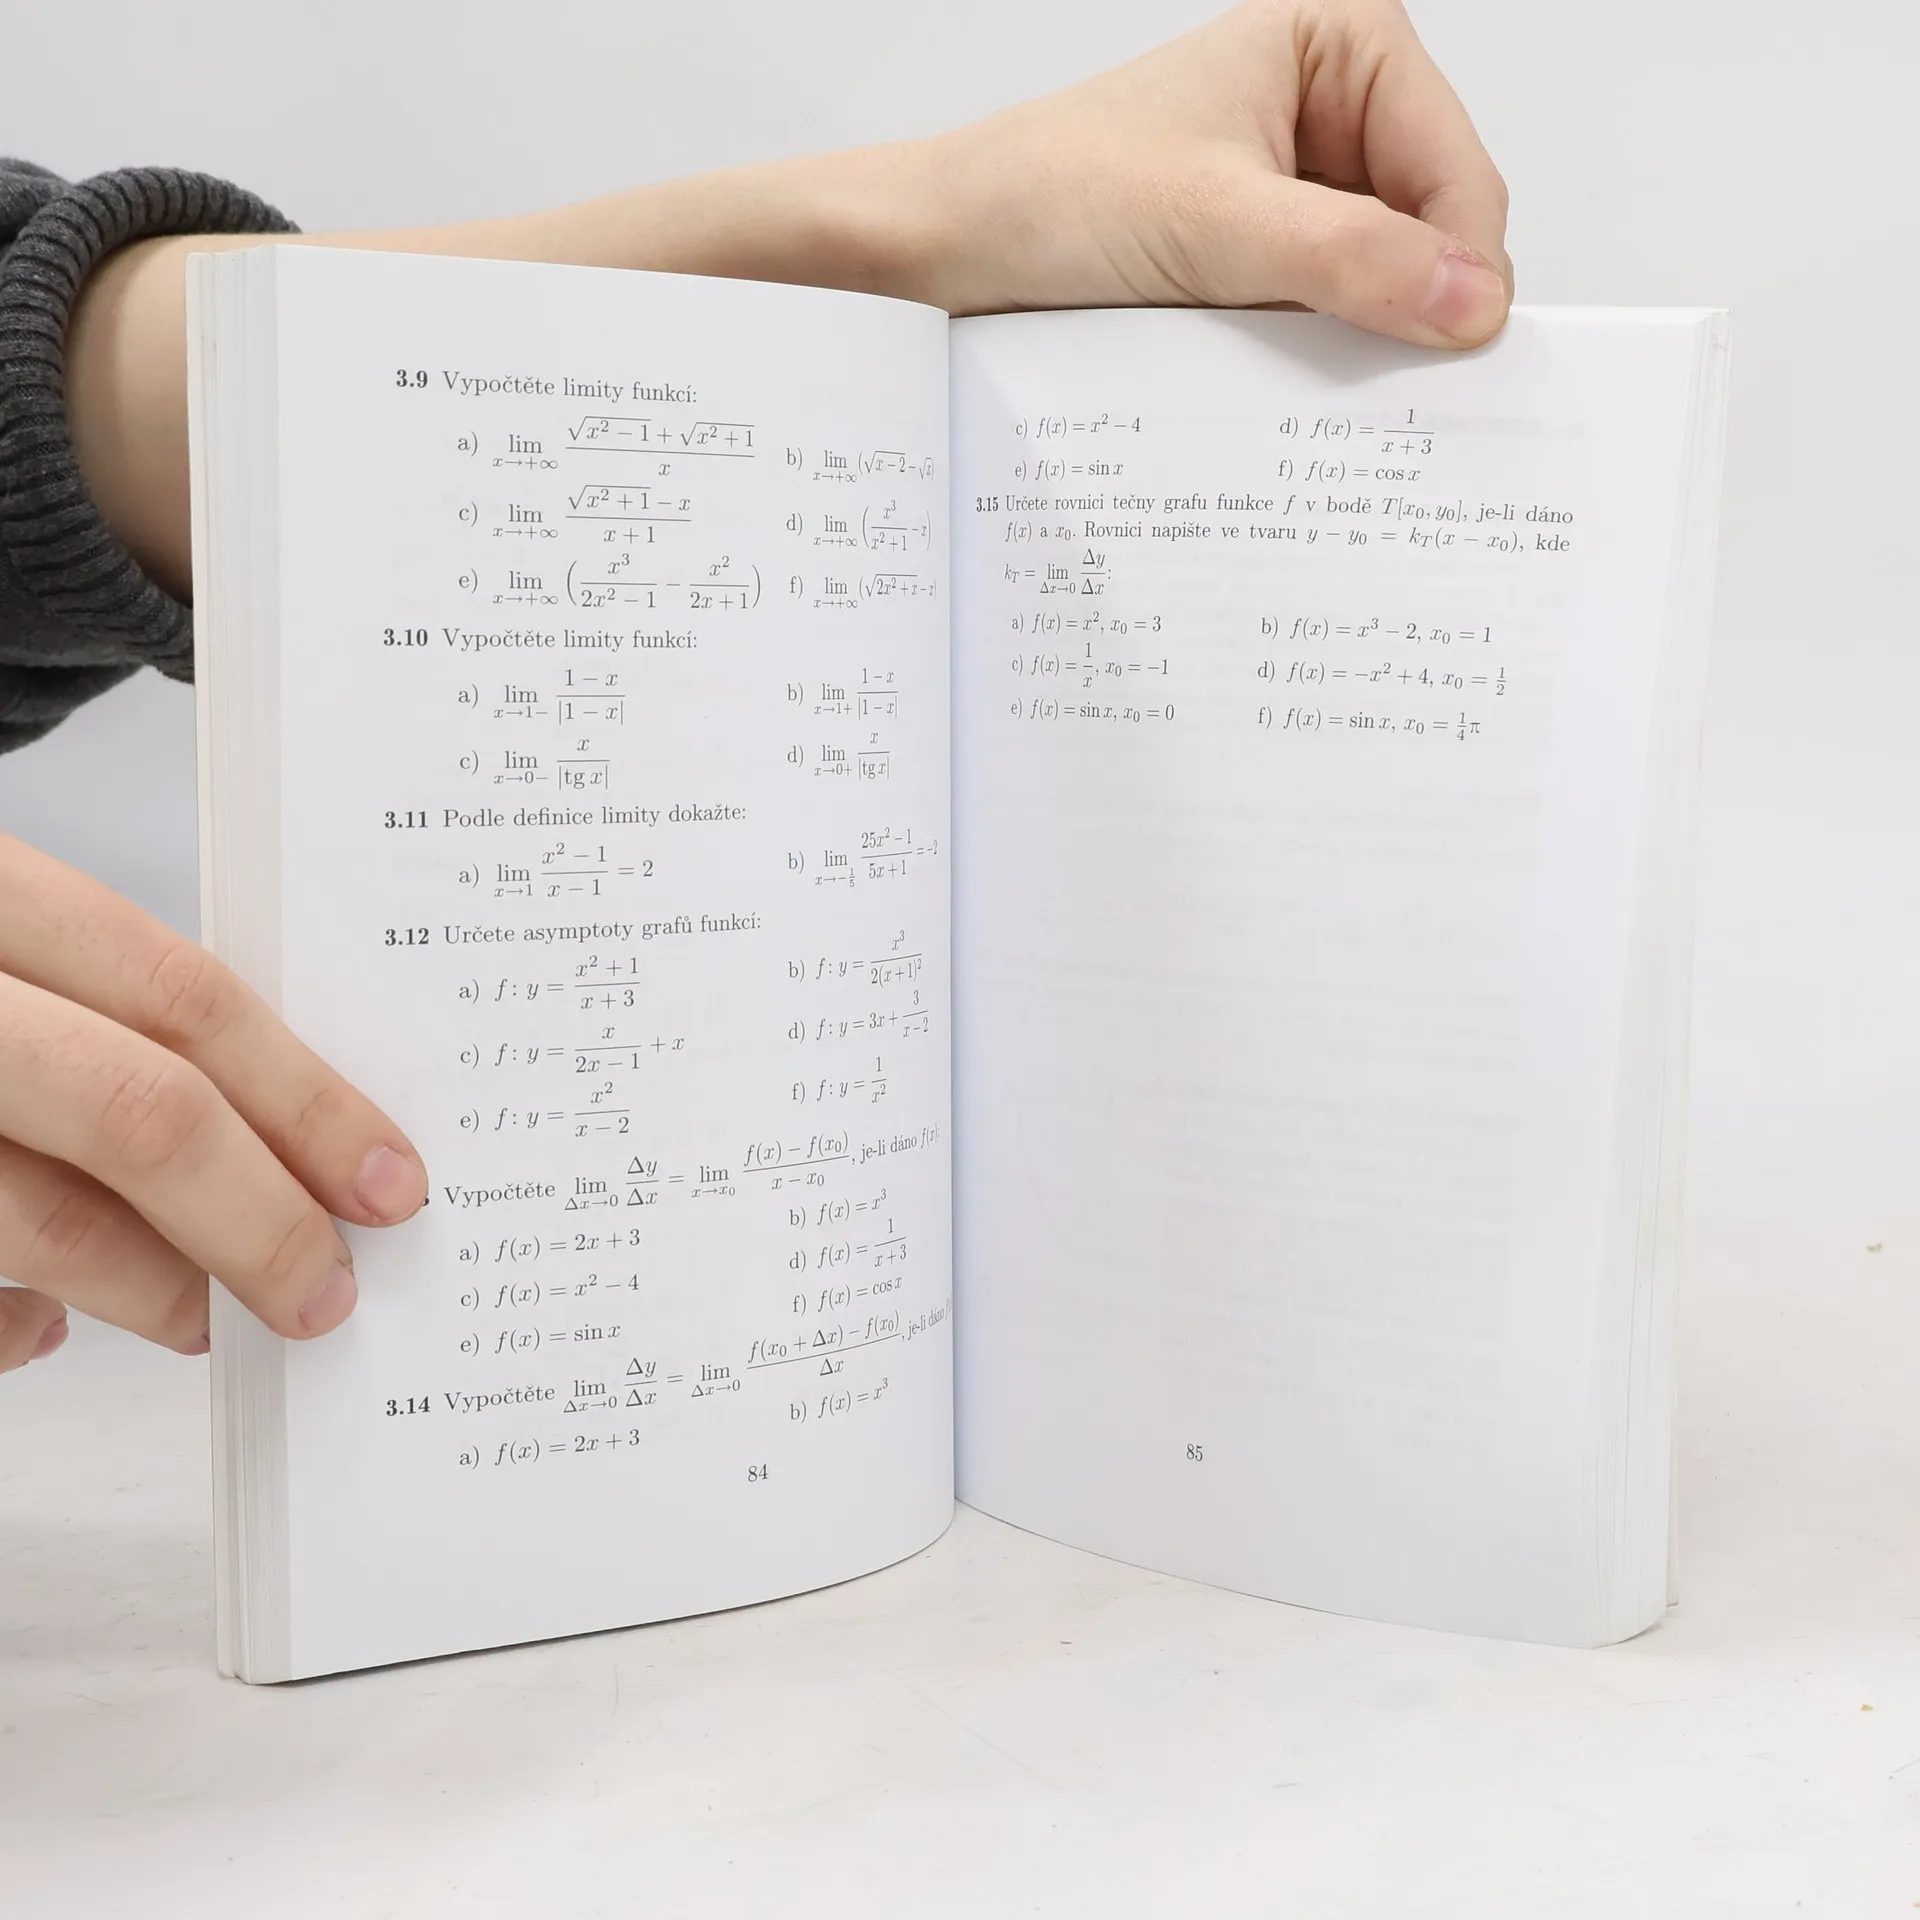 3.9 Vypočtěte limity funkcí:
a) lim x→+∞ (√(x² − 1) + √(x² + 1))/x b) lim x→+∞ (√(x − 2) − √x)
c) lim x→+∞ (√(x² + 1) − x)/(x + 1) d) lim x→+∞ (x³/(x² + 1) − x)
e) lim x→+∞ (x³/(2x² − 1) − x²/(2x + 1)) f) lim x→+∞ (√(2x² + x) − x)
3.10 Vypočtěte limity funkcí:
a) lim x→1− (1 − x)/|1 − x| b) lim x→1+ (1 − x)/|1 − x|
c) lim x→0− x/|tg x| d) lim x→0+ x/|tg x|
3.11 Podle definice limity dokažte:
a) lim x→1 (x² − 1)/(x − 1) = 2 b) lim x→−1/5 (25x² − 1)/(5x + 1) = −2
3.12 Určete asymptoty grafů funkcí:
a) f: y = (x² + 1)/(x + 3) b) f: y = x³/(2(x + 1)²)
c) f: y = x/(2x − 1) + x d) f: y = 3x + 3/(x − 2)
e) f: y = x²/(x − 2) f) f: y = 1/x²
Vypočtěte lim Δx→0 Δy/Δx = lim x→x₀ (f(x) − f(x₀))/(x − x₀), je-li dáno f(x):
a) f(x) = 2x + 3 b) f(x) = x³
c) f(x) = x² − 4 d) f(x) = 1/(x + 3)
e) f(x) = sin x f) f(x) = cos x
3.14 Vypočtěte lim Δx→0 Δy/Δx = lim Δx→0 (f(x₀ + Δx) − f(x₀))/Δx, je-li dáno
a) f(x) = 2x + 3 b) f(x) = x³
84
c) f(x) = x² − 4 d) f(x) = 1/(x + 3)
e) f(x) = sin x f) f(x) = cos x
3.15 Určete rovnici tečny grafu funkce f v bodě T[x₀, y₀], je-li dáno
f(x) a x₀. Rovnici napište ve tvaru y − y₀ = k_T(x − x₀), kde
k_T = lim Δx→0 Δy/Δx:
a) f(x) = x², x₀ = 3 b) f(x) = x³ − 2, x₀ = 1
c) f(x) = 1/x, x₀ = −1 d) f(x) = −x² + 4, x₀ = 1/2
e) f(x) = sin x, x₀ = 0 f) f(x) = sin x, x₀ = 1/4 π
85